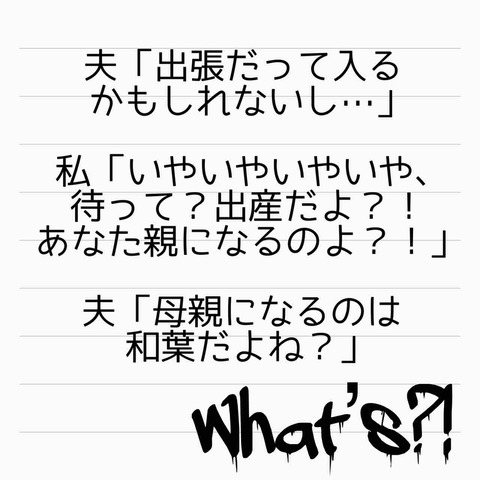 夫「出張だって入る
かもしれないし…」
私「いやいやいやいや、
待って？出産だよ？！
あなた親になるのよ？！」
夫「母親になるのは
和葉だよね？」
What's?!